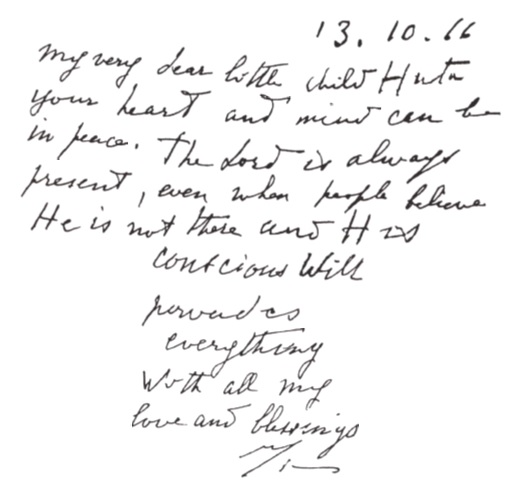 13.10.66
My very dear little child Huta
your heart and mind can be
in peace. The Lord is always
present, even when people believe
He is not there and His
conscious Will
pervades
everything
With all my
love and blessings